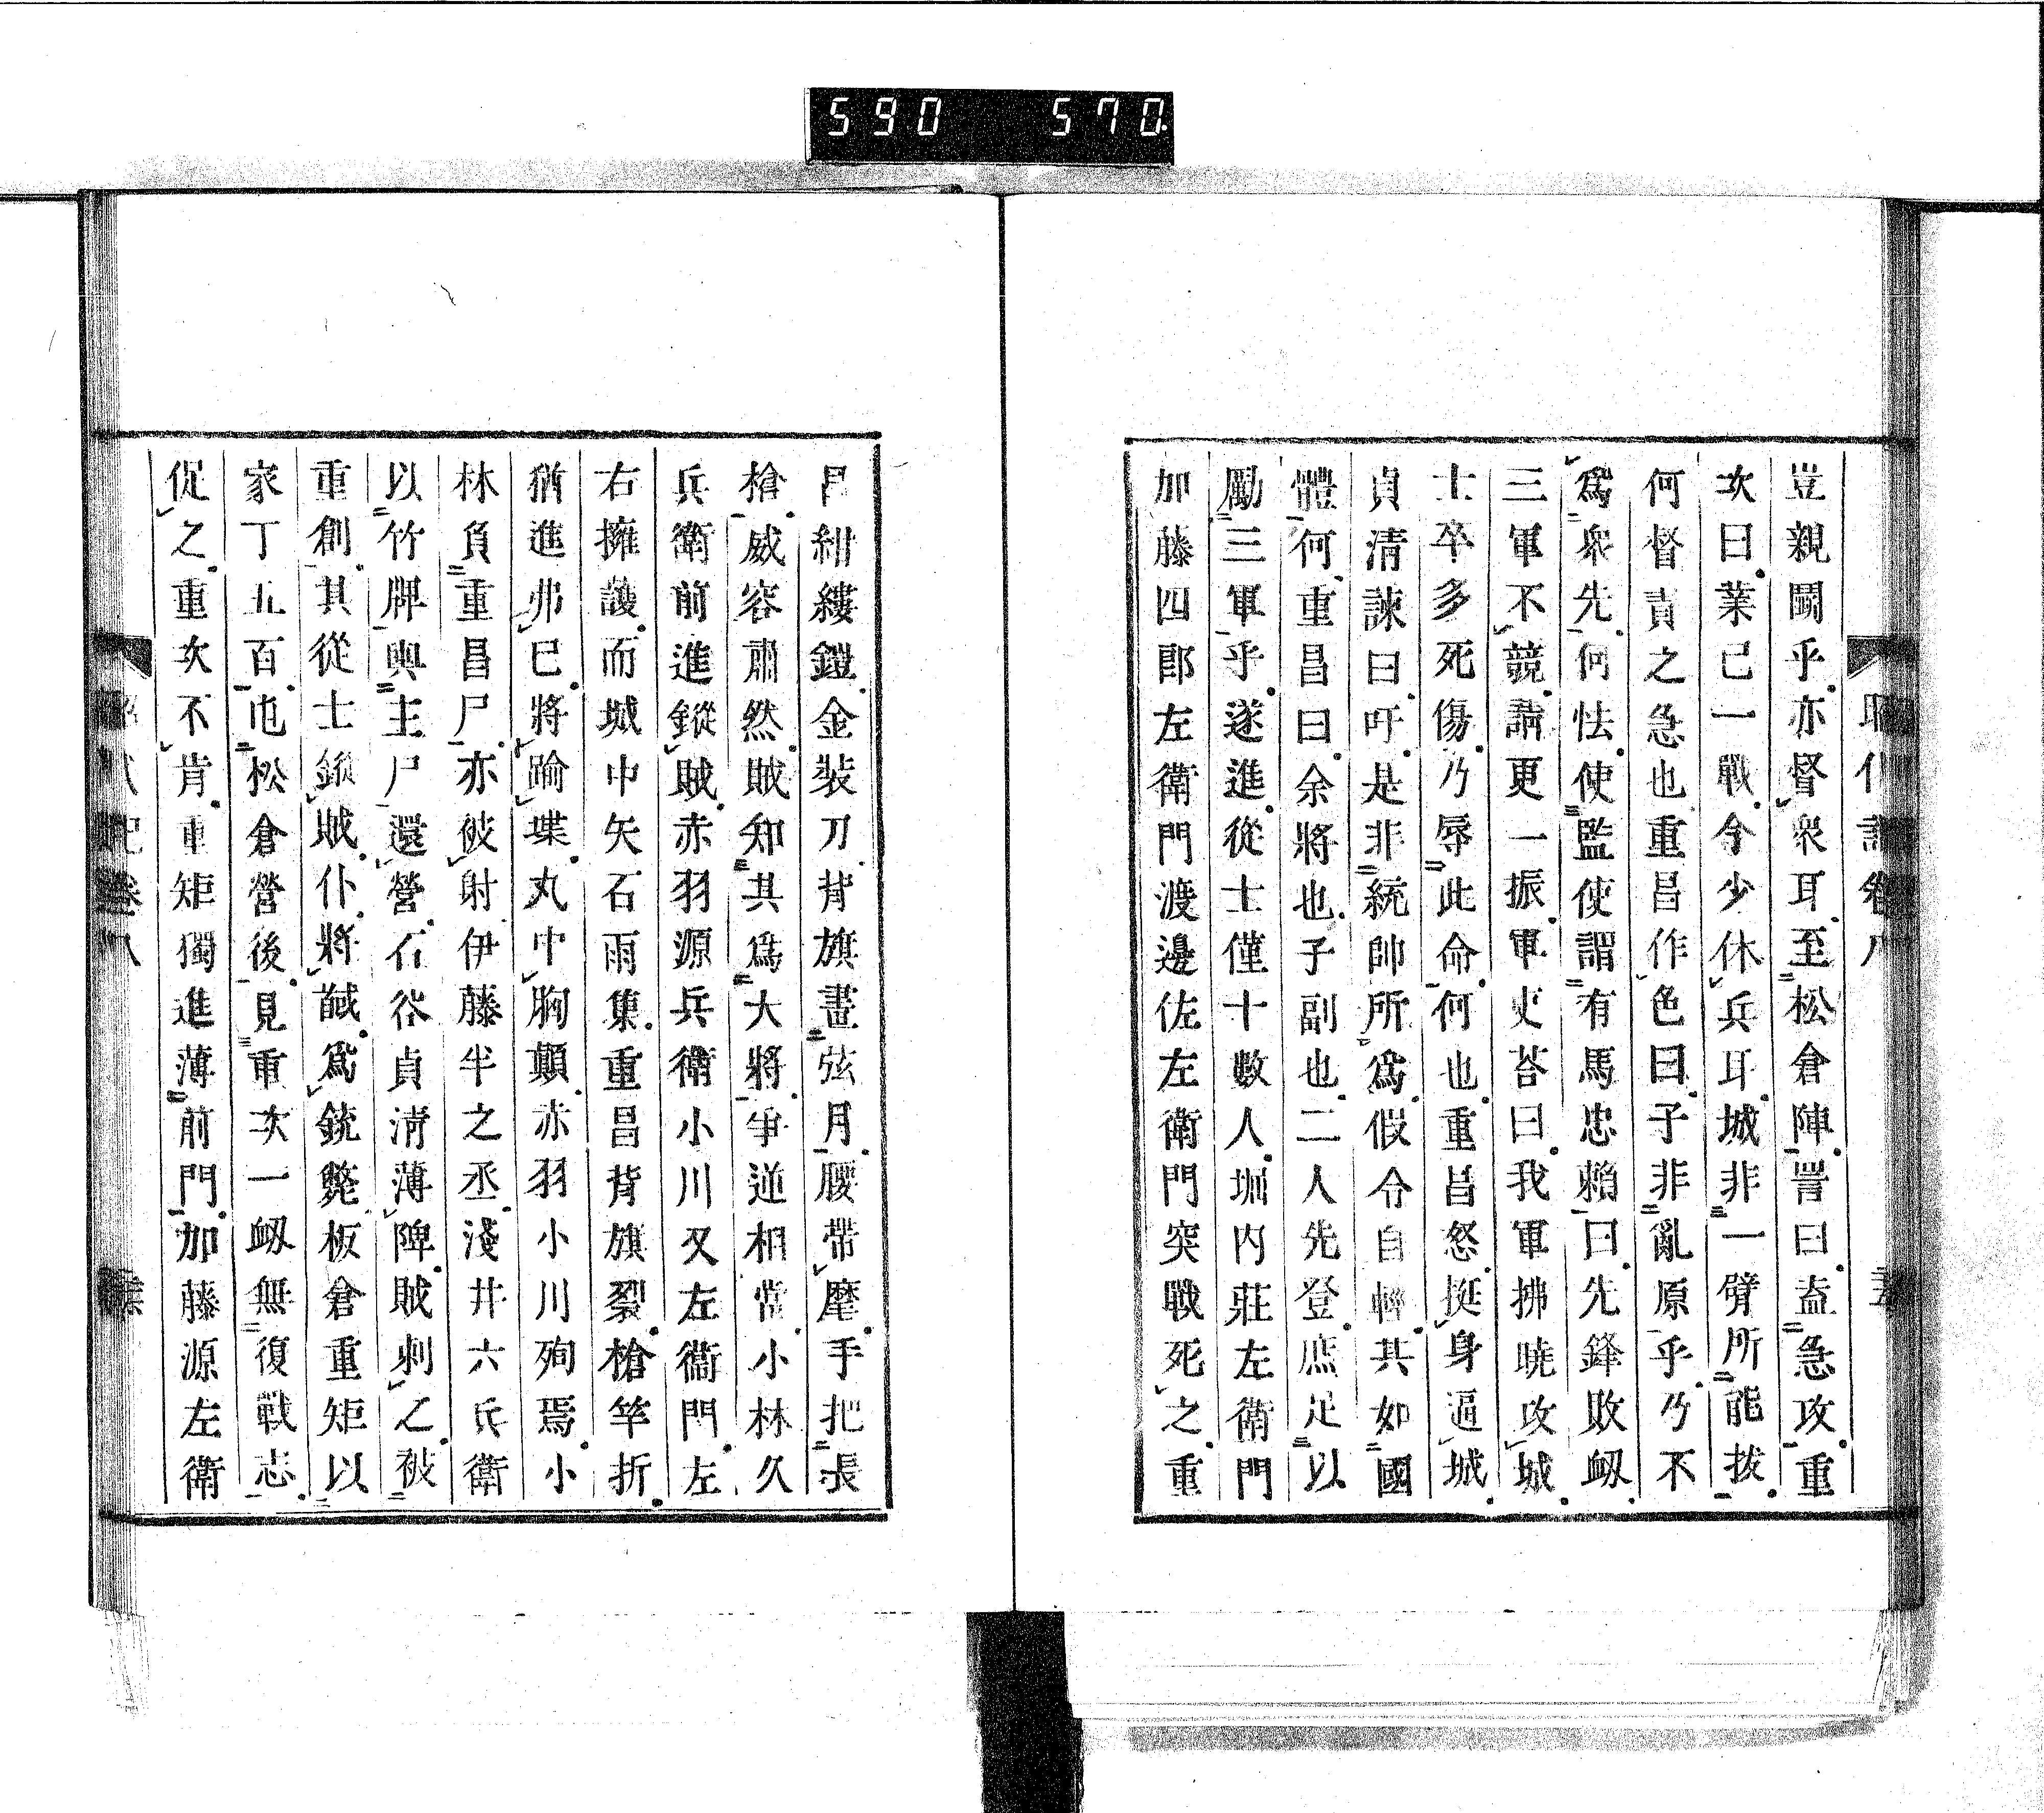 590 570
豈親鬭乎亦督衆耳至松倉陣詈曰盍急攻重
次曰業已一戰今少休兵耳城非一臂所能拔
何督責之急也重昌作色曰子非亂原乎乃不
爲衆先何怯使監使謂有馬忠賴曰先鋒敗衂
三軍不競請更一振軍吏荅曰我軍拂曉攻城
士卒多死傷乃辱此命何也重昌怒挺身逼城
貞清諫曰吁是非統帥所爲假令自輕其如國
體何重昌曰余將也子副也二人先登庶足以
勵三軍乎遂進從士僅十數人堀内莊左衛門
加藤四郎左衛門渡邊佐左衛門突戰死之重
昌紺縷鎧金裝刀背旗畫弦月腰帶麾手把長
槍威容肅然賊知其爲大將爭逆相當小林久
兵衛前進鏦賊赤羽源兵衛小川又左衛門左
右擁護而城中矢石雨集重昌背旗裂槍竿折
猶進弗已將踰堞丸中胸顛赤羽小川殉焉小
林負重昌尸亦被射伊藤半之丞淺井六兵衛
以竹牌輿主尸還營石谷貞清薄陴賊刺之被
重創其從士鏦賊仆將馘爲銃斃板倉重矩以
家丁五百也松倉營後見重次一衂無復戰志
促之重次不肯重矩獨進薄前門加藤源左衛